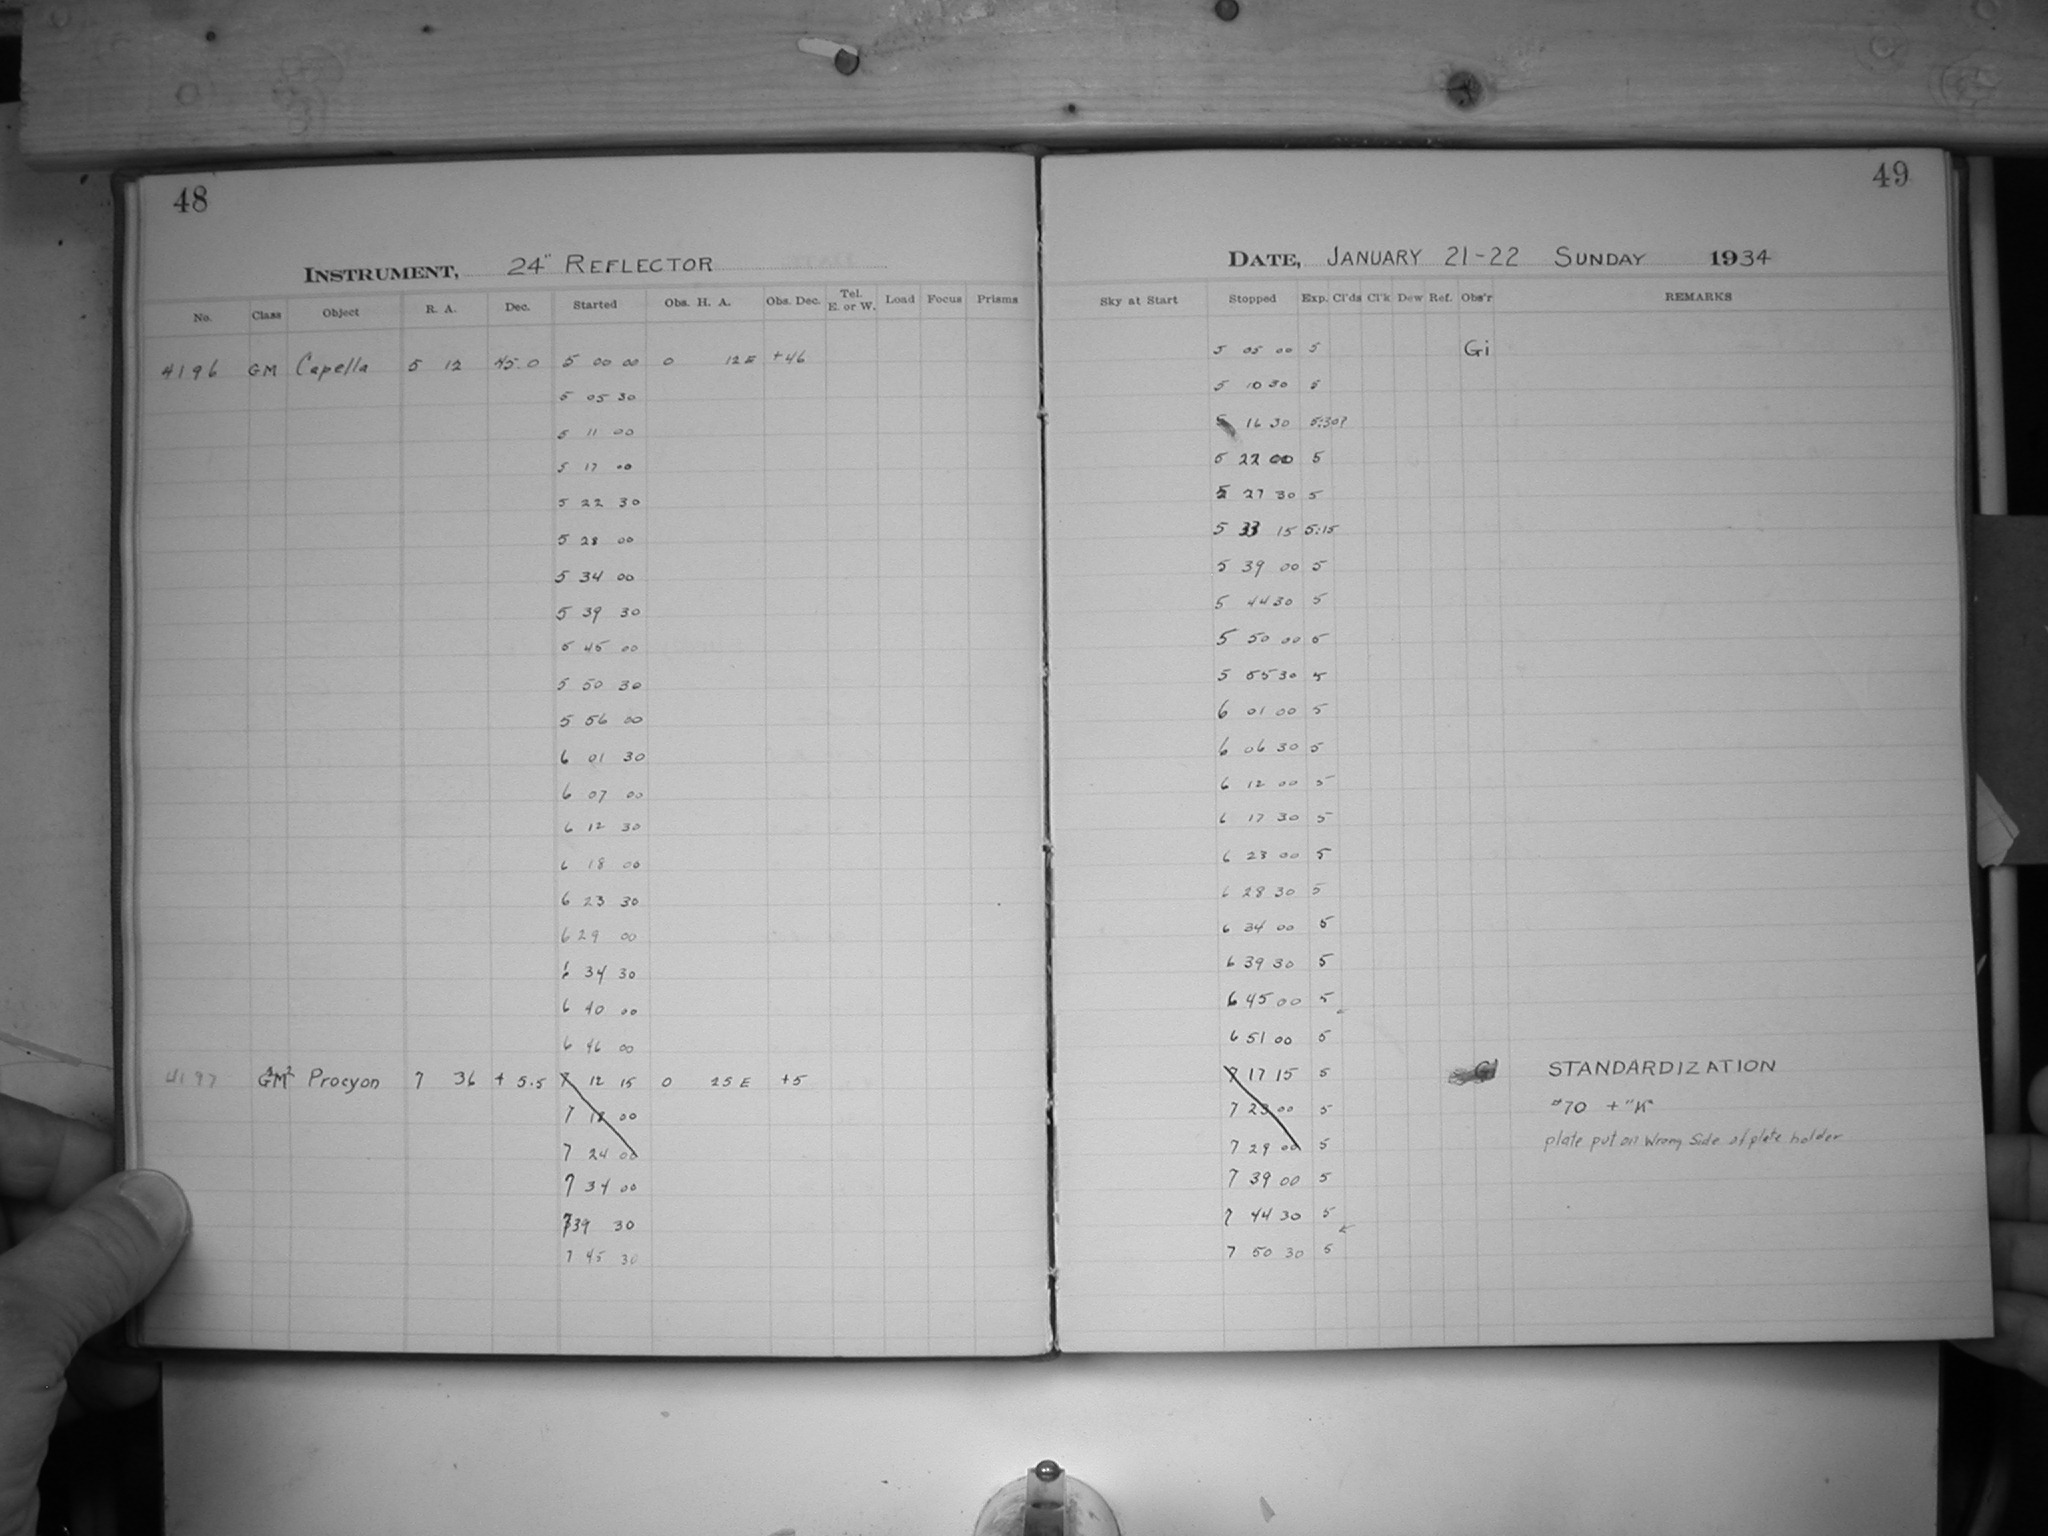 48
INSTRUMENT, 24" REFLECTOR
No. Class Object R. A. Dec. Started Obs. H. A. Obs. Dec. Tel. E. or W. Load Focus Prisms
4196 GM Capella 5 12 45.0 5 00 00 0 12 E +46
5 05 30
5 11 00
5 17 00
5 22 30
5 28 00
5 34 00
5 39 30
5 45 00
5 50 30
5 56 00
6 01 30
6 07 00
6 12 30
6 18 00
6 23 30
6 29 00
6 34 30
6 40 00
6 46 00
4197 GM² Procyon 7 36 + 5.5 7 12 15 0 25 E +5
7 18 00
7 24 00
7 34 00
7 39 30
7 45 30
49
DATE, JANUARY 21-22 SUNDAY 1934
Sky at Start Stopped Exp. Cl'ds Cl'k Dew Ref. Obs'r REMARKS
5 05 00 5 Gi
5 10 30 5
5 16 30 5:30?
5 22 00 5
5 27 30 5
5 33 15 5:15
5 39 00 5
5 44 30 5
5 50 00 5
5 55 30 5
6 01 00 5
6 06 30 5
6 12 00 5
6 17 30 5
6 23 00 5
6 28 30 5
6 34 00 5
6 39 30 5
6 45 00 5
6 51 00 5
7 17 15 5 STANDARDIZATION
7 23 00 5 #70 + "K"
7 29 00 5 plate put on Wrong Side of plate holder
7 39 00 5
7 44 30 5
7 50 30 5